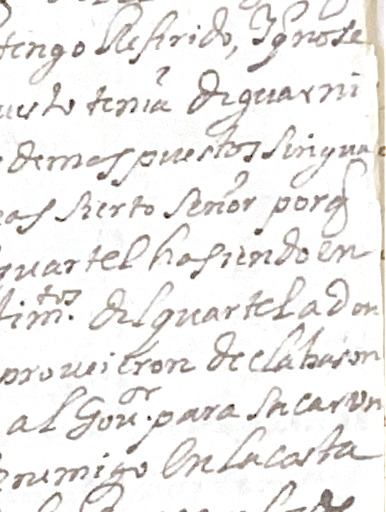 tengo Referido, Y q̃ no se
uesto tenia de guarni
demas puestos sin gua
as sierto señor porq̃
quartel hasiendo en
tim.tos del quartel a don
proueieron de la bason
al Gou.or para sacar vn
enemigo en la costa